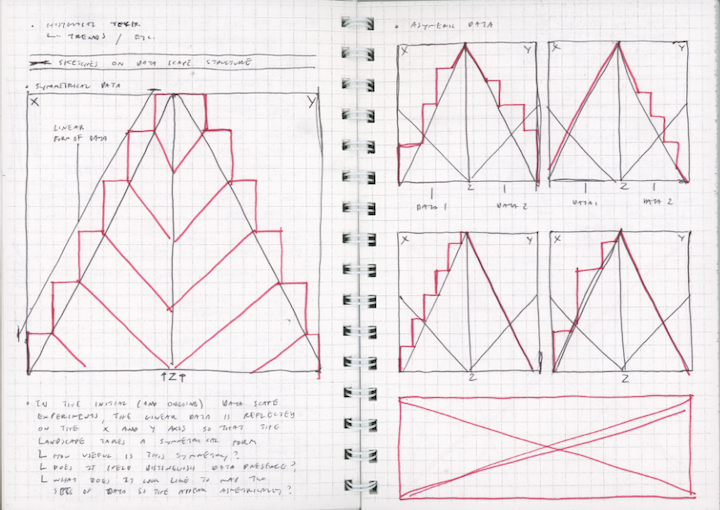 HISTORICAL
TRENDS / ETC.
SKETCHES ON DATA SCAPE STRUCTURE
SYMMETRICAL DATA
X Y
LINEAR
FORM OF DATA
↑Z↑
IN THE INITIAL (AND ONGOING) DATA SCAPE
EXPERIMENTS, THE LINEAR DATA IS
ON THE X AND Y AXIS SO THAT THE
LANDSCAPE TAKES A SYMMETRICAL FORM
HOW USEFUL IS THIS SYMMETRY?
DOES IT DISTINGUISH DATA PRESENCE?
WHAT DOES IT LOOK LIKE TO MAP TWO
SETS OF DATA SO THE APPEAR ASYMETRICALLY?
ASYMETRIC DATA
X Y
Z Z
DATA 1 DATA 2 DATA 1 DATA 2
X X Y
Z Z